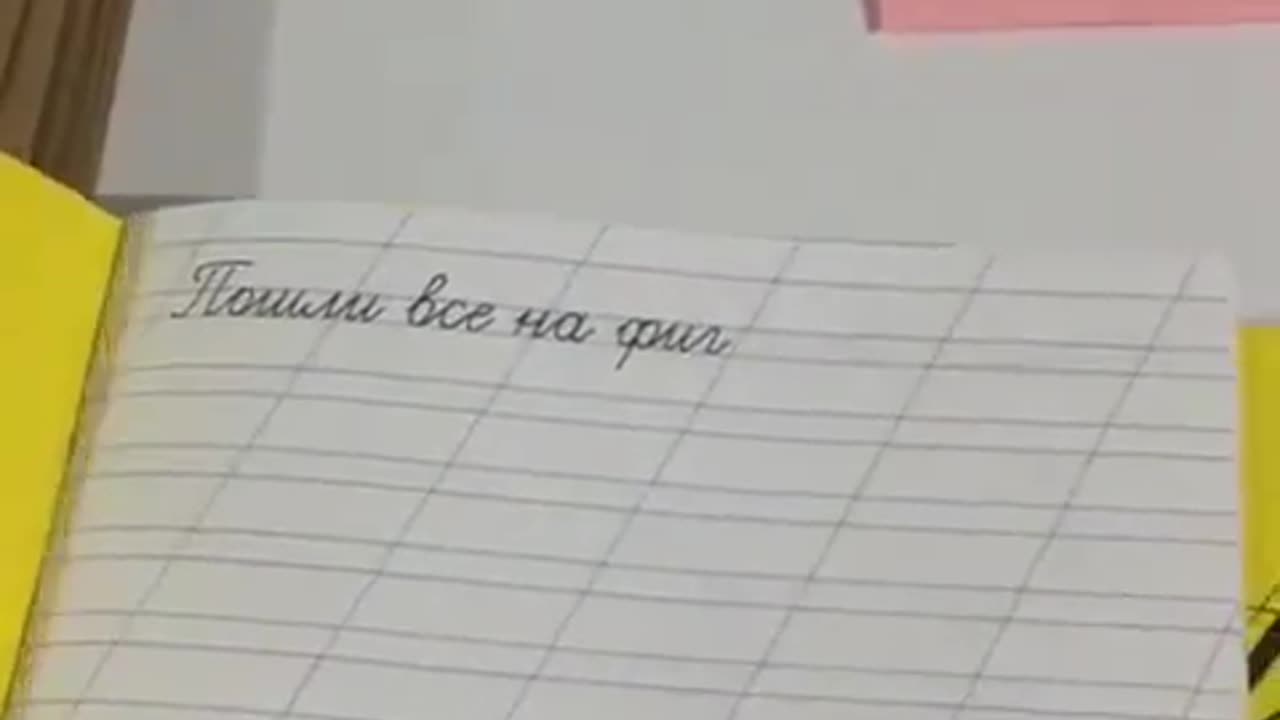 Пошли все на фиг